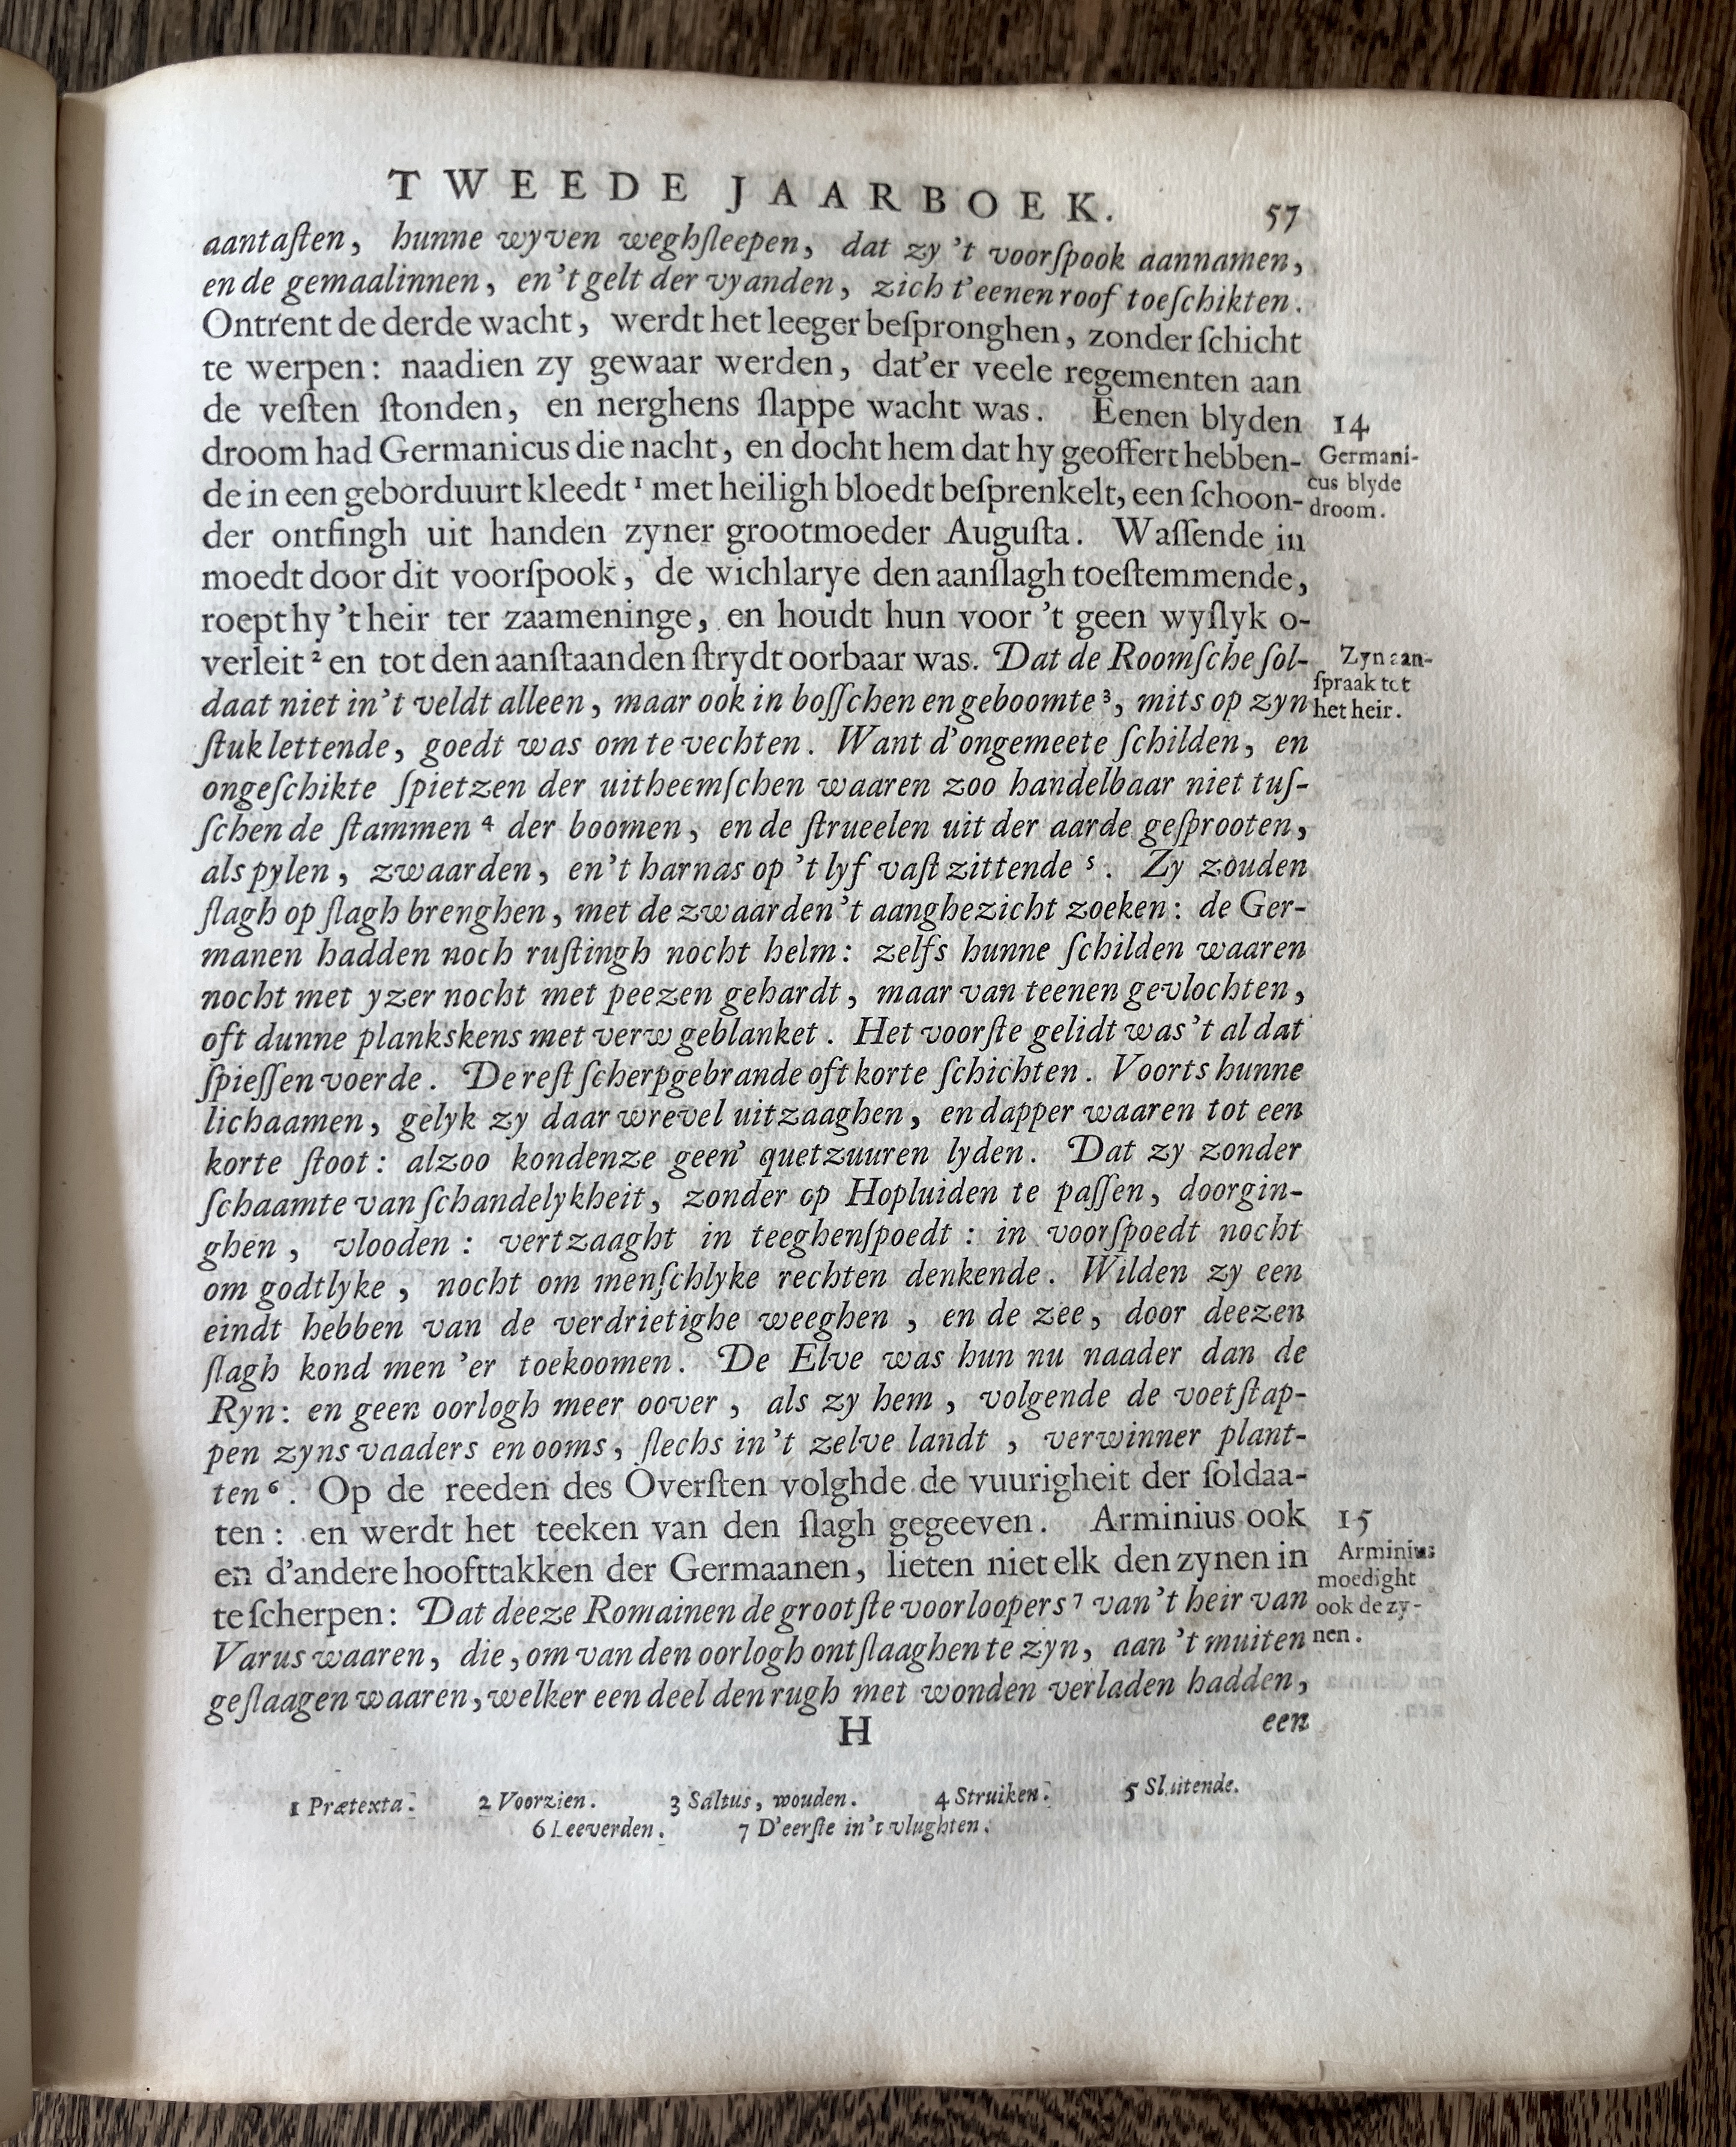 TWEEDE JAARBOEK. 57
aantaſten, hunne wyven weghſleepen, dat zy 't voorſpook aannamen,
en de gemaalinnen, en 't gelt der vyanden, zich t'eenen roof toeſchikten.
Ontrent de derde wacht, werdt het leeger beſpronghen, zonder ſchicht
te werpen: naadien zy gewaar werden, dat'er veele regementen aan
de veſten ſtonden, en nerghens ſlappe wacht was. Eenen blyden
droom had Germanicus die nacht, en docht hem dat hy geoffert hebben-
de in een geborduurt kleedt ¹ met heiligh bloedt beſprenkelt, een ſchoon-
der ontfingh uit handen zyner grootmoeder Auguſta. Waſſende in
moedt door dit voorſpook, de wichlarye den aanſlagh toeſtemmende,
roept hy 't heir ter zaameninge, en houdt hun voor 't geen wyſlyk o-
verleit ² en tot den aanſtaanden ſtrydt oorbaar was. Dat de Roomſche ſol-
daat niet in't veldt alleen, maar ook in boſſchen en geboomte ³, mits op zyn
ſtuk lettende, goedt was om te vechten. Want d'ongemeete ſchilden, en
ongeſchikte ſpietzen der uitheemſchen waaren zoo handelbaar niet tuſ-
ſchen de ſtammen ⁴ der boomen, en de ſtrueelen uit der aarde geſprooten,
als pylen, zwaarden, en't harnas op 't lyf vaſt zittende ⁵. Zy zouden
ſlagh op ſlagh brenghen, met de zwaarden't aanghezicht zoeken: de Ger-
manen hadden noch ruſtingh nocht helm: zelfs hunne ſchilden waaren
nocht met yzer nocht met peezen gehardt, maar van teenen gevlochten,
oft dunne plankskens met verw geblanket. Het voorſte gelidt was't al dat
ſpieſſen voerde. De reſt ſcherpgebrande oft korte ſchichten. Voorts hunne
lichaamen, gelyk zy daar wrevel uitzaaghen, en dapper waaren tot een
korte ſtoot: alzoo kondenze geen' quetzuuren lyden. Dat zy zonder
ſchaamte van ſchandelykheit, zonder op Hopluiden te paſſen, doorgin-
ghen, vlooden: vertzaaght in teeghenſpoedt: in voorſpoedt nocht
om godtlyke, nocht om menſchlyke rechten denkende. Wilden zy een
eindt hebben van de verdrietighe weeghen, en de zee, door deezen
ſlagh kond men 'er toekoomen. De Elve was hun nu naader dan de
Ryn: en geen oorlogh meer oover, als zy hem, volgende de voetſtap-
pen zyns vaaders en ooms, ſlechs in't zelve landt, verwinner plant-
ten ⁶. Op de reeden des Overſten volghde de vuurigheit der ſoldaa-
ten: en werdt het teeken van den ſlagh gegeeven. Arminius ook
en d'andere hoofttakken der Germaanen, lieten niet elk den zynen in
te ſcherpen: Dat deeze Romainen de grootſte voorloopers ⁷ van't heir van
Varus waaren, die, om van den oorlogh ontſlaaghen te zyn, aan 't muiten
geſlaagen waaren, welker een deel den rugh met wonden verladen hadden,
H een
14
Germani-
cus blyde
droom.
Zyn aan-
ſpraak tot
het heir.
15
Arminius
moedight
ook de zy-
nen.
1 Prætexta. 2 Voorzien. 3 Saltus, wouden. 4 Struiken. 5 Sluitende.
6 Leeverden. 7 D'eerſte in't vlughten.